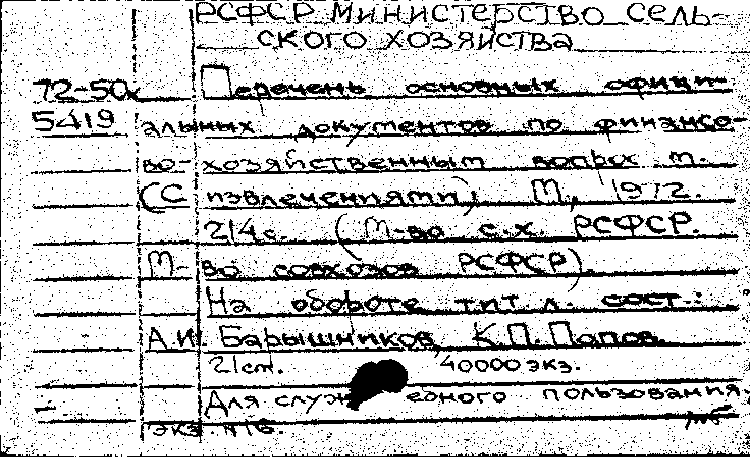 РСФСР МИНИСТЕРСТВО СЕЛЬ-
СКОГО ХОЗЯЙСТВА
72-50к Перечень основных офици-
5419 альных документов по финансо-
во-хозяйственным вопрсх м.
(С извлечениями). М., 1972.
214 с. (М-во с.х. РСФСР.
М-во совхозов РСФСР).
На обороте тит. л. сост.:
А.И. Барышников, К.П. Попов.
21 см. 40000 экз.
Для служебного пользования,
экз. №16.